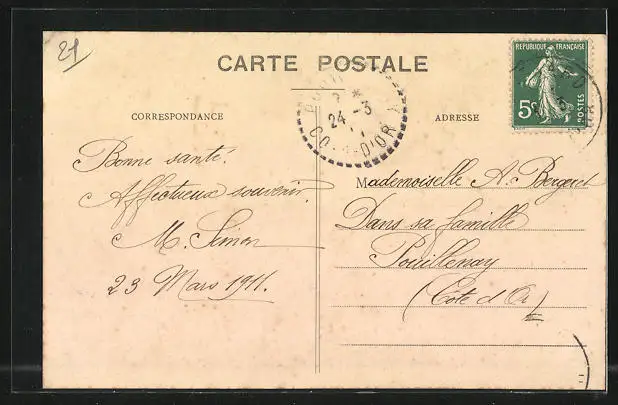 21
CARTE POSTALE
REPUBLIQUE FRANÇAISE
5c
POSTES
24 - 3
11
COTE-D'OR
CORRESPONDANCE
ADRESSE
Bonne santé.
Affectueux souvenir
M. Simon
23 Mars 1911.
Mademoiselle A. Bergeret
Dans sa famille
Pouillenay
(Côte d'Or)